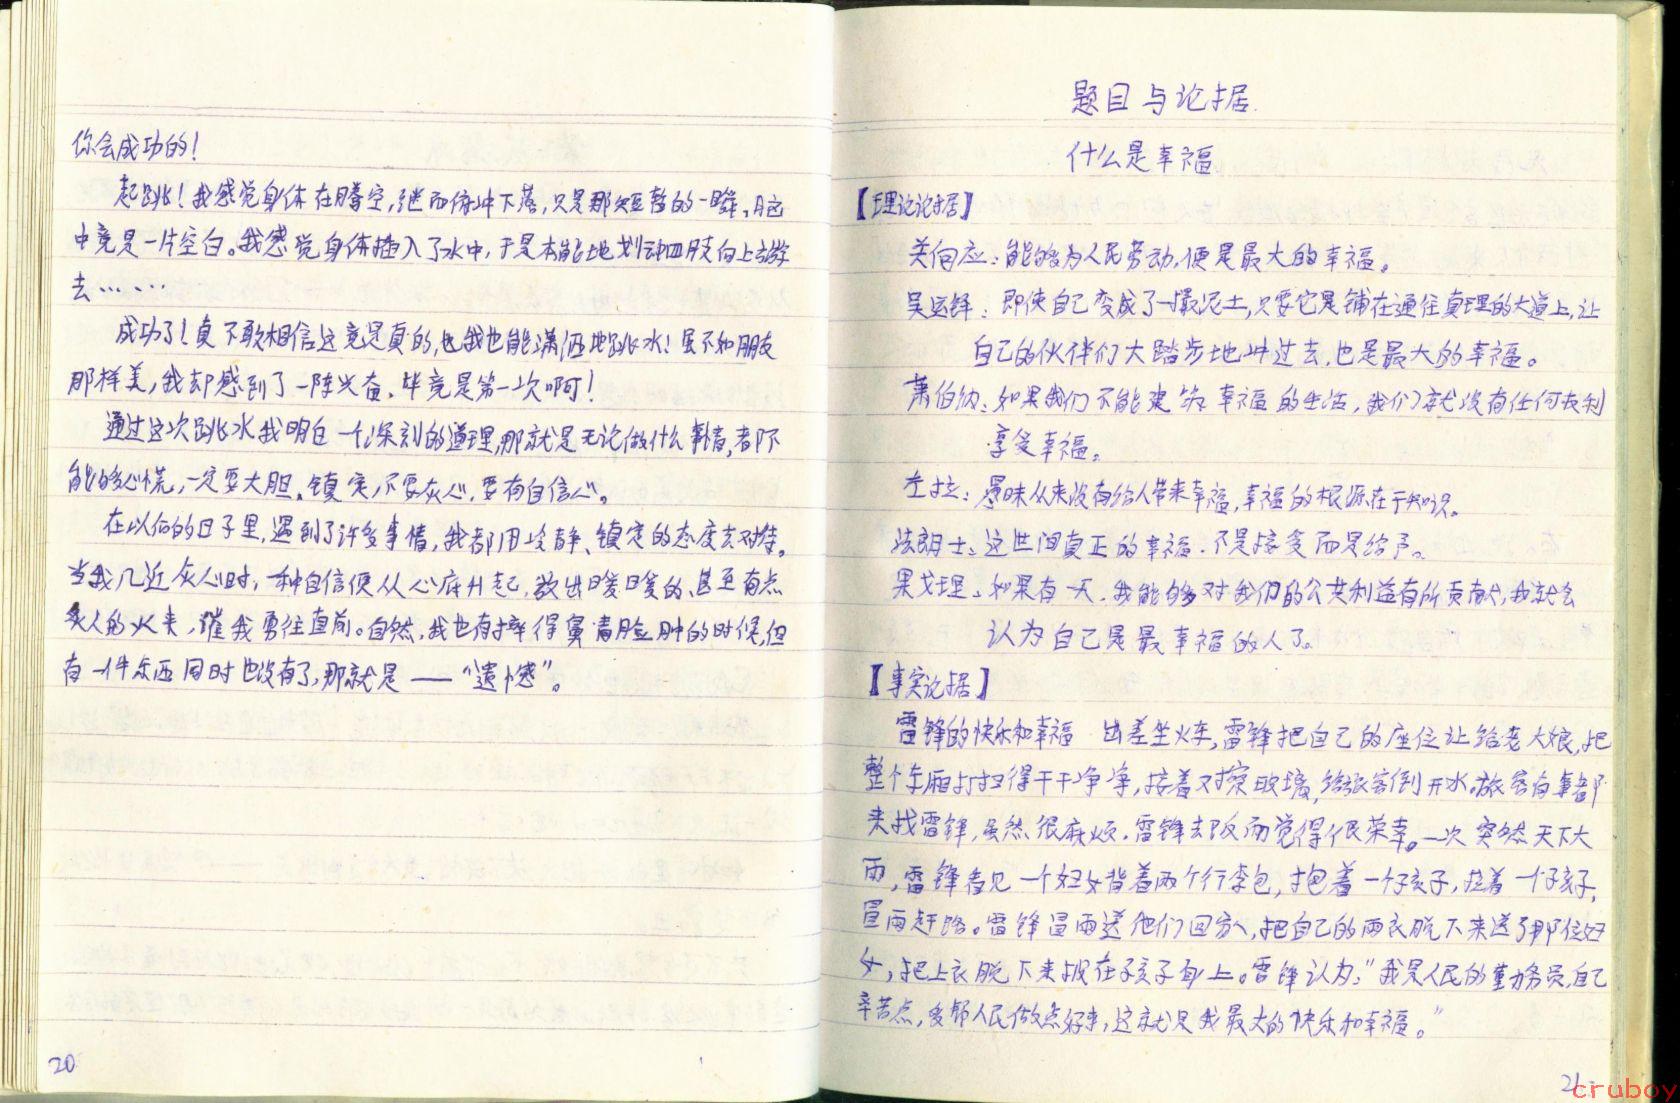 你会成功的！
起跳！我感觉身体在腾空，继而俯冲下落，只是那短暂的一瞬，脑
中竟是一片空白。我感觉身体插入了水中，于是本能地划动四肢向上游
去……
成功了！真不敢相信这竟是真的，我也能潇洒地跳水！虽不如朋友
那样美，我却感到了一阵兴奋，毕竟是第一次啊！
通过这次跳水我明白一个深刻的道理，那就是无论做什么事情，都不
能够心慌，一定要大胆、镇定，不要灰心，要有自信心。
在以后的日子里，遇到了许多事情，我都用冷静、镇定的态度去对待。
当我几近灰心时，一种自信便从心底升起，放出暖暖的、甚至有点
炙人的火来，催我勇往直前。自然，我也有摔得鼻青脸肿的时候，但
有一件东西同时也没有了，那就是——“遗憾”。
20
题目与论据
什么是幸福
【理论论据】
关向应：能够为人民劳动，便是最大的幸福。
吴运铎：即使自己变成了一撮泥土，只要它是铺在通往真理的大道上，让
自己的伙伴们大踏步地冲过去，也是最大的幸福。
萧伯纳：如果我们不能建筑幸福的生活，我们就没有任何权利
享受幸福。
左拉：愚昧从来没有给人带来幸福，幸福的根源在于知识。
法朗士：这世间真正的幸福，不是接受而是给予。
果戈理：如果有一天，我能够对我们的公共利益有所贡献，我就会
认为自己是最幸福的人了。
【事实论据】
雷锋的快乐和幸福 出差坐火车，雷锋把自己的座位让给老大娘，把
整个车厢打扫得干干净净，接着又擦玻璃，给旅客倒开水。旅客有事都
来找雷锋，虽然很麻烦，雷锋却反而觉得很荣幸。一次突然天下大
雨，雷锋看见一个妇女背着两个行李包，抱着一个孩子，拉着一个孩子，
冒雨赶路。雷锋冒雨送他们回家，把自己的雨衣脱下来送了那位妇
女，把上衣脱下来披在孩子身上。雷锋认为：“我是人民的勤务员，自己
辛苦点，多帮人民做点好事，这就是我最大的快乐和幸福。”
21
cruboy